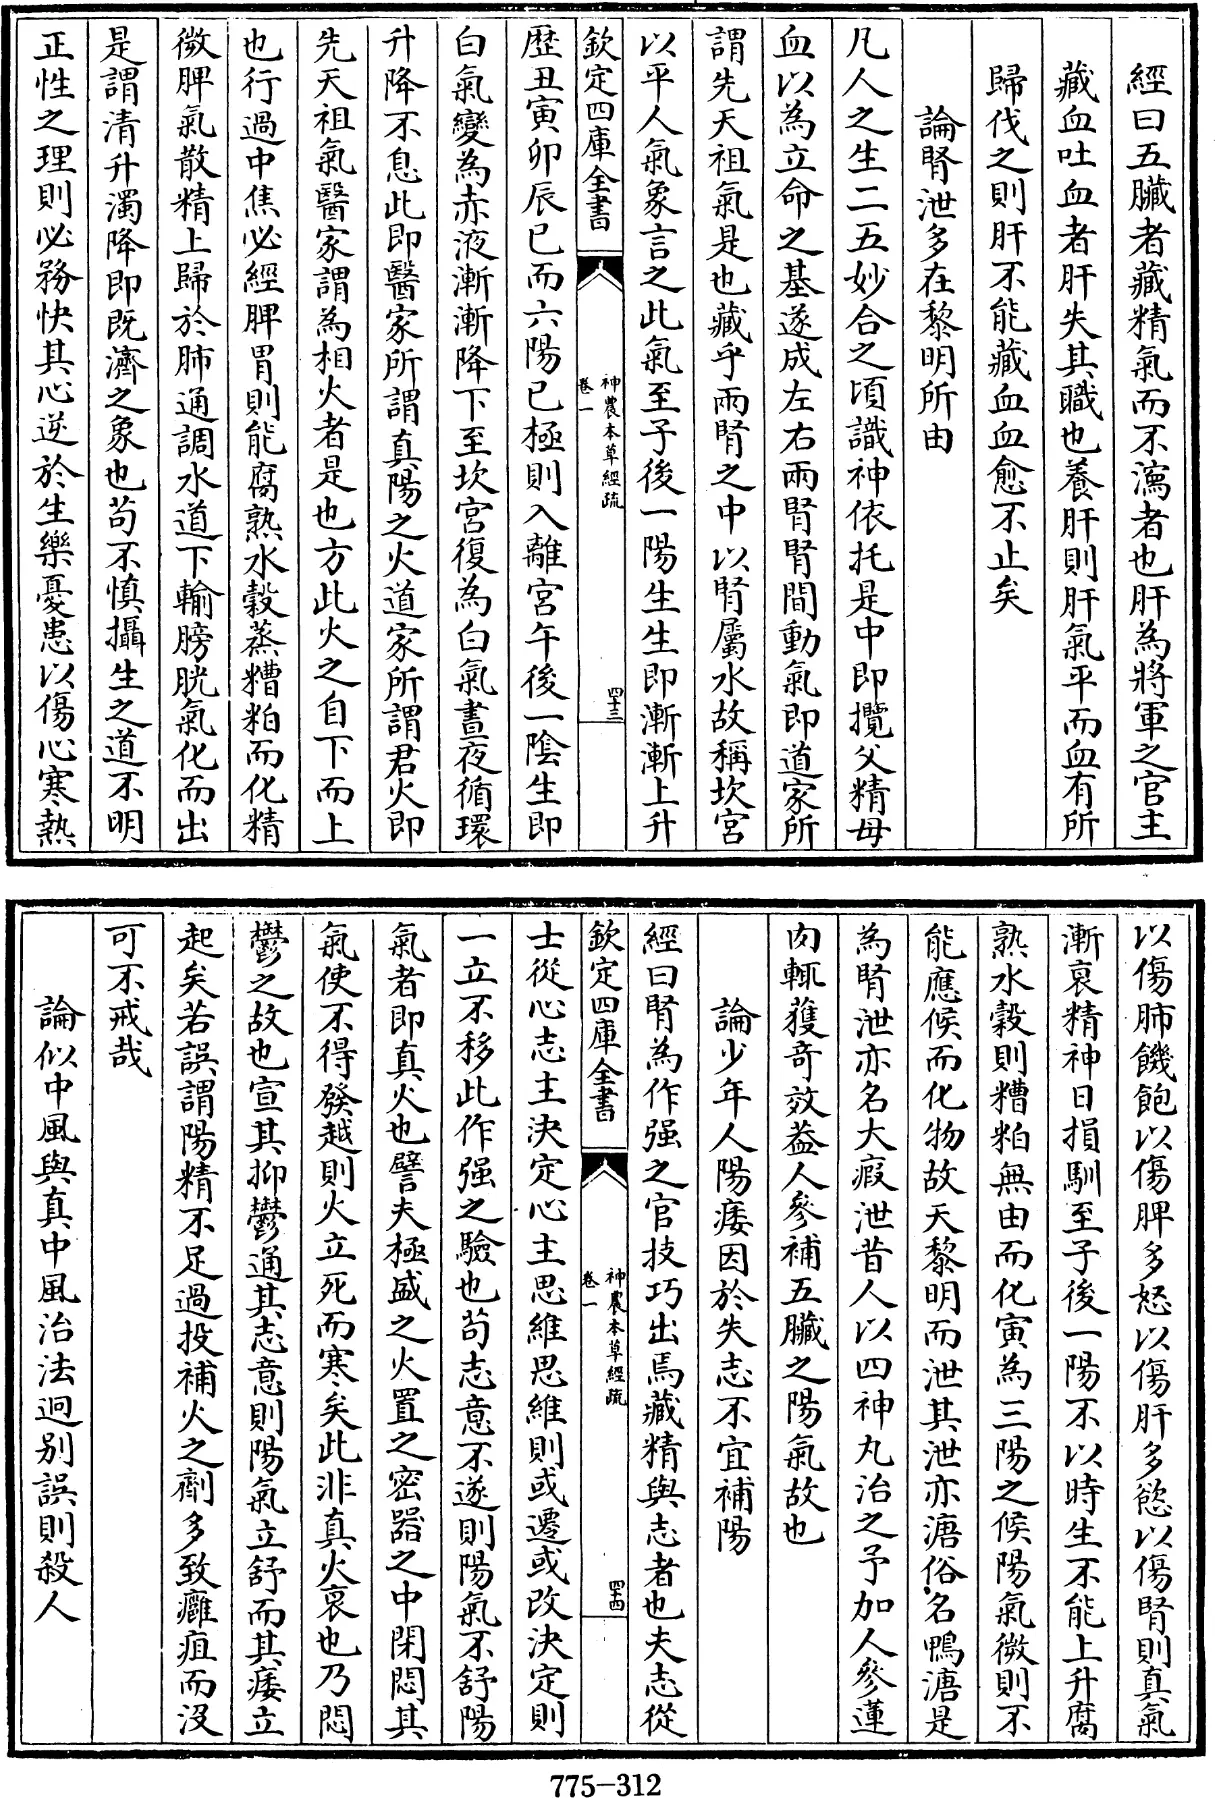 經曰五臟者藏精氣而不瀉者也肝為將軍之官主
藏血吐血者肝失其職也養肝則肝氣平而血有所
歸伐之則肝不能藏血血愈不止矣
論腎泄多在黎明所由
凡人之生二五妙合之頃識神依托是中即攬父精母
血以為立命之基遂成左右兩腎腎間動氣即道家所
謂先天祖氣是也藏乎兩腎之中以腎屬水故稱坎宮
以平人氣象言之此氣至子後一陽生生即漸漸上升
欽定四庫全書
神農本草經疏
卷一
四十三
歷丑寅卯辰巳而六陽已極則入離宮午後一陰生即
白氣變為赤液漸漸降下至坎宮復為白氣晝夜循環
升降不息此即醫家所謂真陽之火道家所謂君火即
先天祖氣醫家謂為相火者是也方此火之自下而上
也行過中焦必經脾胃則能腐熟水穀蒸糟粕而化精
微脾氣散精上歸於肺通調水道下輸膀胱氣化而出
是謂清升濁降即既濟之象也苟不慎攝生之道不明
正性之理則必務快其心逆於生樂憂患以傷心寒熱
以傷肺饑飽以傷脾多怒以傷肝多慾以傷腎則真氣
漸衰精神日損馴至子後一陽不以時生不能上升腐
熟水穀則糟粕無由而化寅為三陽之候陽氣微則不
能應候而化物故天黎明而泄其泄亦溏俗名鴨溏是
為腎泄亦名大瘕泄昔人以四神丸治之予加人參蓮
肉輒獲奇效葢人參補五臟之陽氣故也
論少年人陽痿因於失志不宜補陽
經曰腎為作强之官技巧出焉藏精與志者也夫志從
欽定四庫全書
神農本草經疏
卷一
四十四
士從心志主決定心主思維思維則或遷或改決定則
一立不移此作强之驗也苟志意不遂則陽氣不舒陽
氣者即真火也譬夫極盛之火置之密器之中閉悶其
氣使不得發越則火立死而寒矣此非真火衰也乃悶
鬱之故也宣其抑鬱通其志意則陽氣立舒而其痿立
起矣若誤謂陽精不足過投補火之劑多致癰疽而沒
可不戒哉
論似中風與真中風治法迥別誤則殺人
775-312